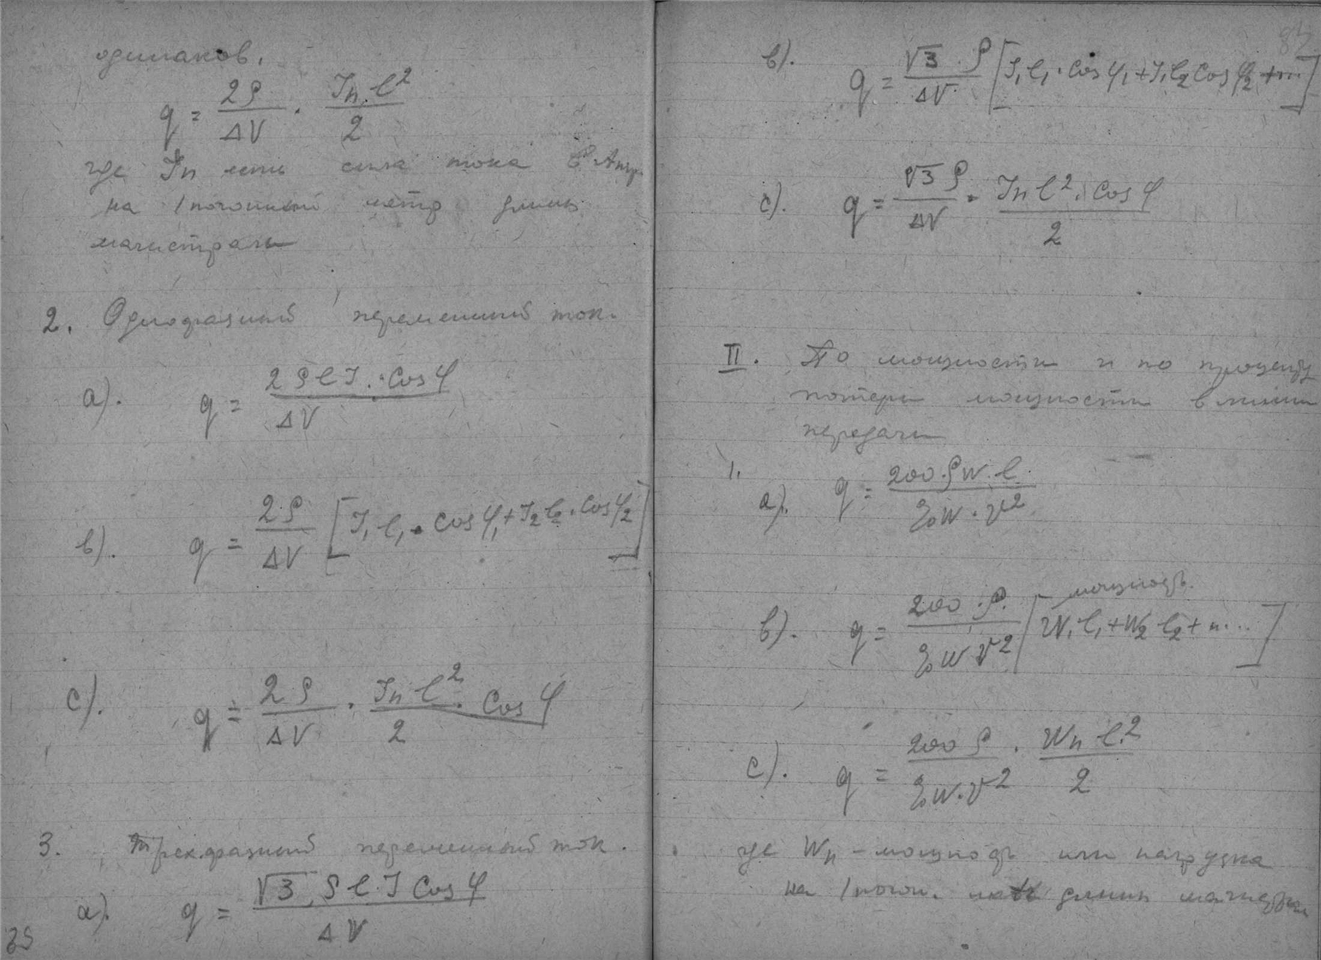 одинаков.
q = 2ρ/ΔV · Jn·l²/2
где Jn есть сила тока в Амп.
на 1 погонный метр длины
магистрали
2. Однофазный переменный ток.
a). q = 2ρlJ·Cosφ/ΔV
b). q = 2ρ/ΔV [J₁l₁·Cosφ₁+J₂l₂·Cosφ₂]
c). q = 2ρ/ΔV · Jn l²/2 · Cosφ
3. Трехфазный переменный ток.
a). q = √3 ρlJ Cosφ/ΔV
35
b). q = √3·ρ/ΔV [J₁l₁·Cosφ₁+J₁l₂Cosφ₂+...]
c). q = √3ρ/ΔV · Jn l²·Cosφ/2
II. По мощности и по проценту
потери мощности в линии
передачи
1.
a). q = 200·ρw·l/%w·v²
мощность
b). q = 200·ρ/%w v² [W₁l₁+W₂l₂+...]
c). q = 200ρ/%w·v² · Wn l²/2
где Wn - мощность или нагрузка
на 1 погон. длины